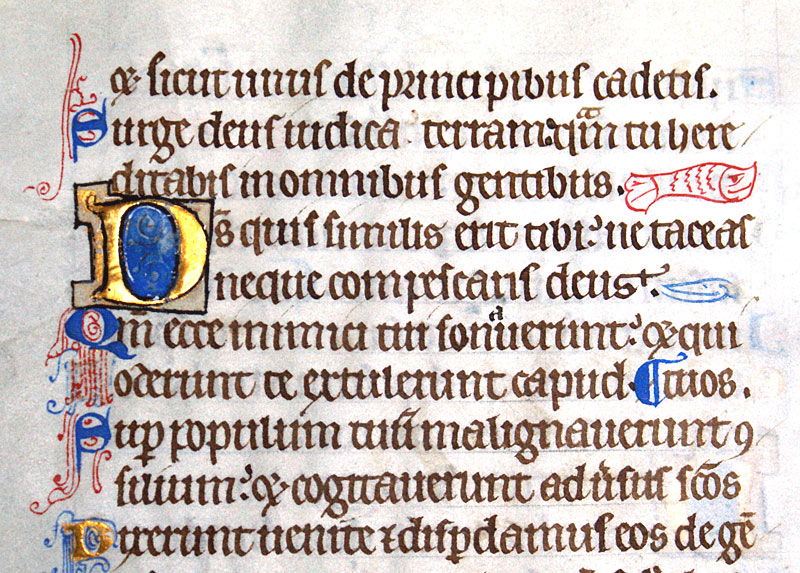 & sicut unus de principibus cadetis.
Surge deus iudica terram: qm̄ tu here
ditabis in omnibus gentibus.
Ds̄ quis similis erit tibi: ne taceas
neque compescaris deus.
Qm̄ ecce inimici tui sonauerunt: & qui
oderunt te extulerunt capud. tuos.
Sup̲ populum tuū malignauerunt ꝯ
silium: & cogitauerunt adūsus scōs
Dixerunt uenite ⁊ disꝑdamus eos de gē